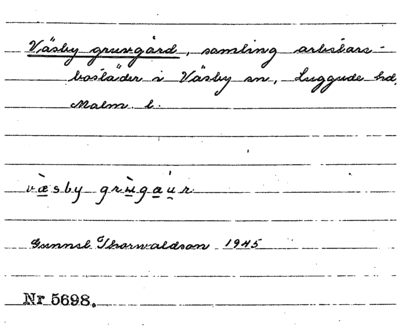 Väsby gruvgård, samling arbetare-
bostäder i Väsby sn, Luggude hd,
Malm. l.
væsby grùgáur
Gunnel Thorwaldson 1945
Nr 5698.